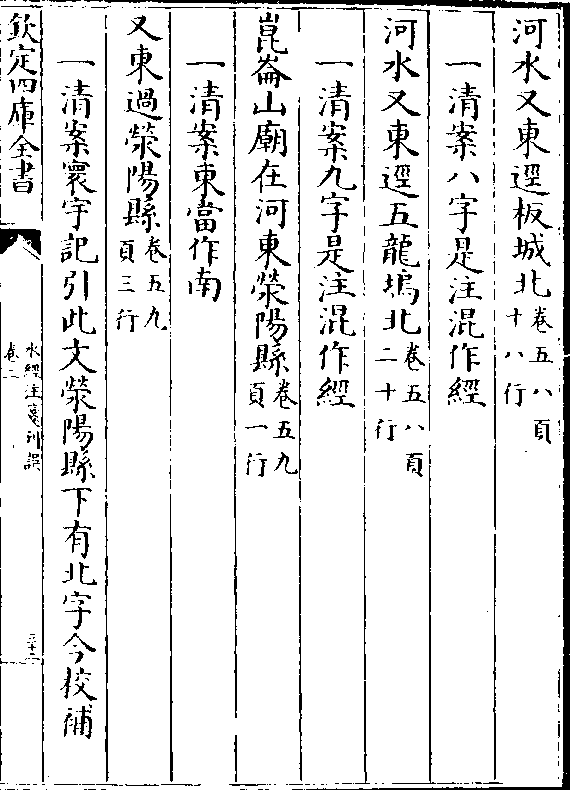 河水又東逕板城北卷五八頁十八行
一清案八字是注混作經
河水又東逕五龍塢北卷五八頁二十行
一清案九字是注混作經
崑崙山廟在河東滎陽縣卷五九頁一行
一清案東當作南
又東過滎陽縣卷五九頁三行
一清案寰宇記引此文滎陽縣下有北字今校補
欽定四庫全書
水經注箋刊誤
卷二
三十二